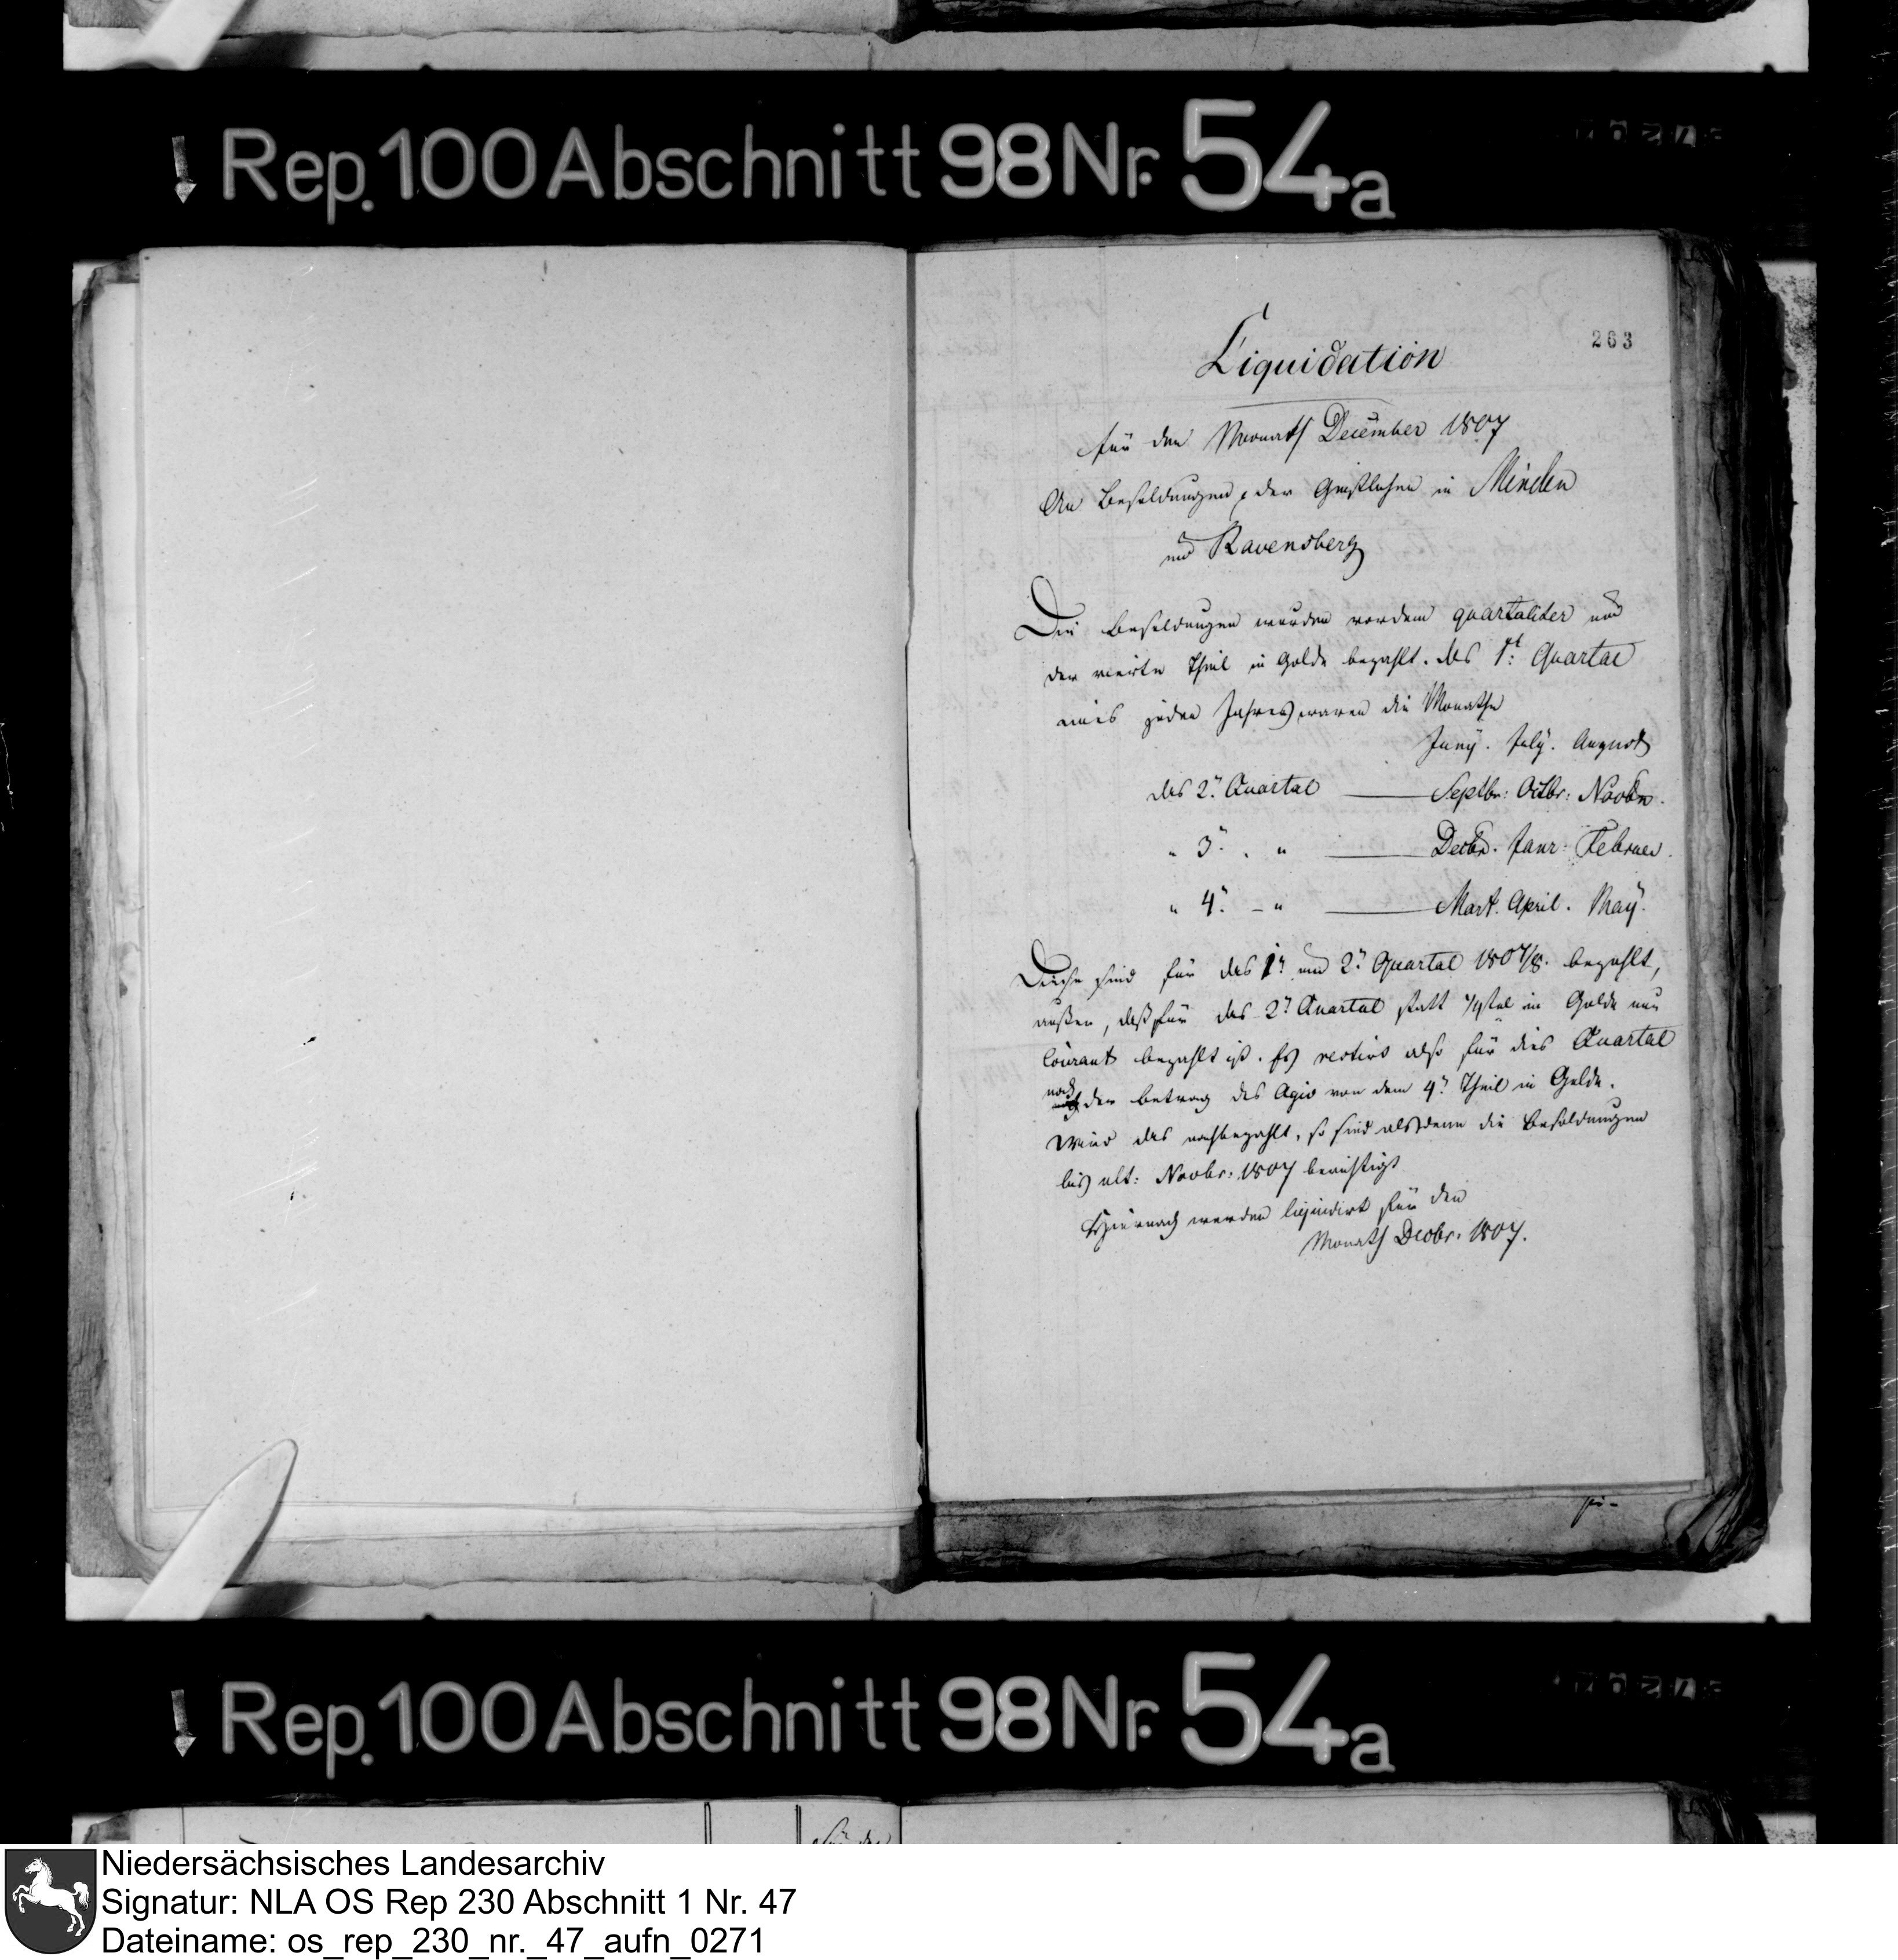 Rep. 100 Abschnitt 98 Nr. 54a
263
Liquidation
für den Monath December 1807
An Besoldungen, der Geistlichen in Minden
und Ravensberg
Die Besoldungen wurden vordem quartaliter und
der vierte Theil in Golde bezahlt. Das 1t: Quartal
eines jeden Jahres waren die Monathe
Juny. July. August
das 2n. Quartal — Septbr: Octbr: Novbr.
" 3n. . " — Decbr. Janr. Februar.
" 4n. - " — Mart. April. May.
Diese sind für das 1n. und 2n. Quartal 1807/8. bezahlt,
außer, daß für das 2n Quartal statt 1/4tel in Golde nur
Courant bezahlt ist. Es restirt also für dies Quartal
noch der Betrag des Agio von dem 4n. Theil in Golde.
Wird das nachbezahlt, so sind alsdenn die Besoldungen
bis ult: Novbr. 1807 berichtigt
Hiernach werden liquidirt für den
Monath Decbr. 1807.
Rep. 100 Abschnitt 98 Nr. 54a
Niedersächsisches Landesarchiv
Signatur: NLA OS Rep 230 Abschnitt 1 Nr. 47
Dateiname: os_rep_230_nr._47_aufn_0271